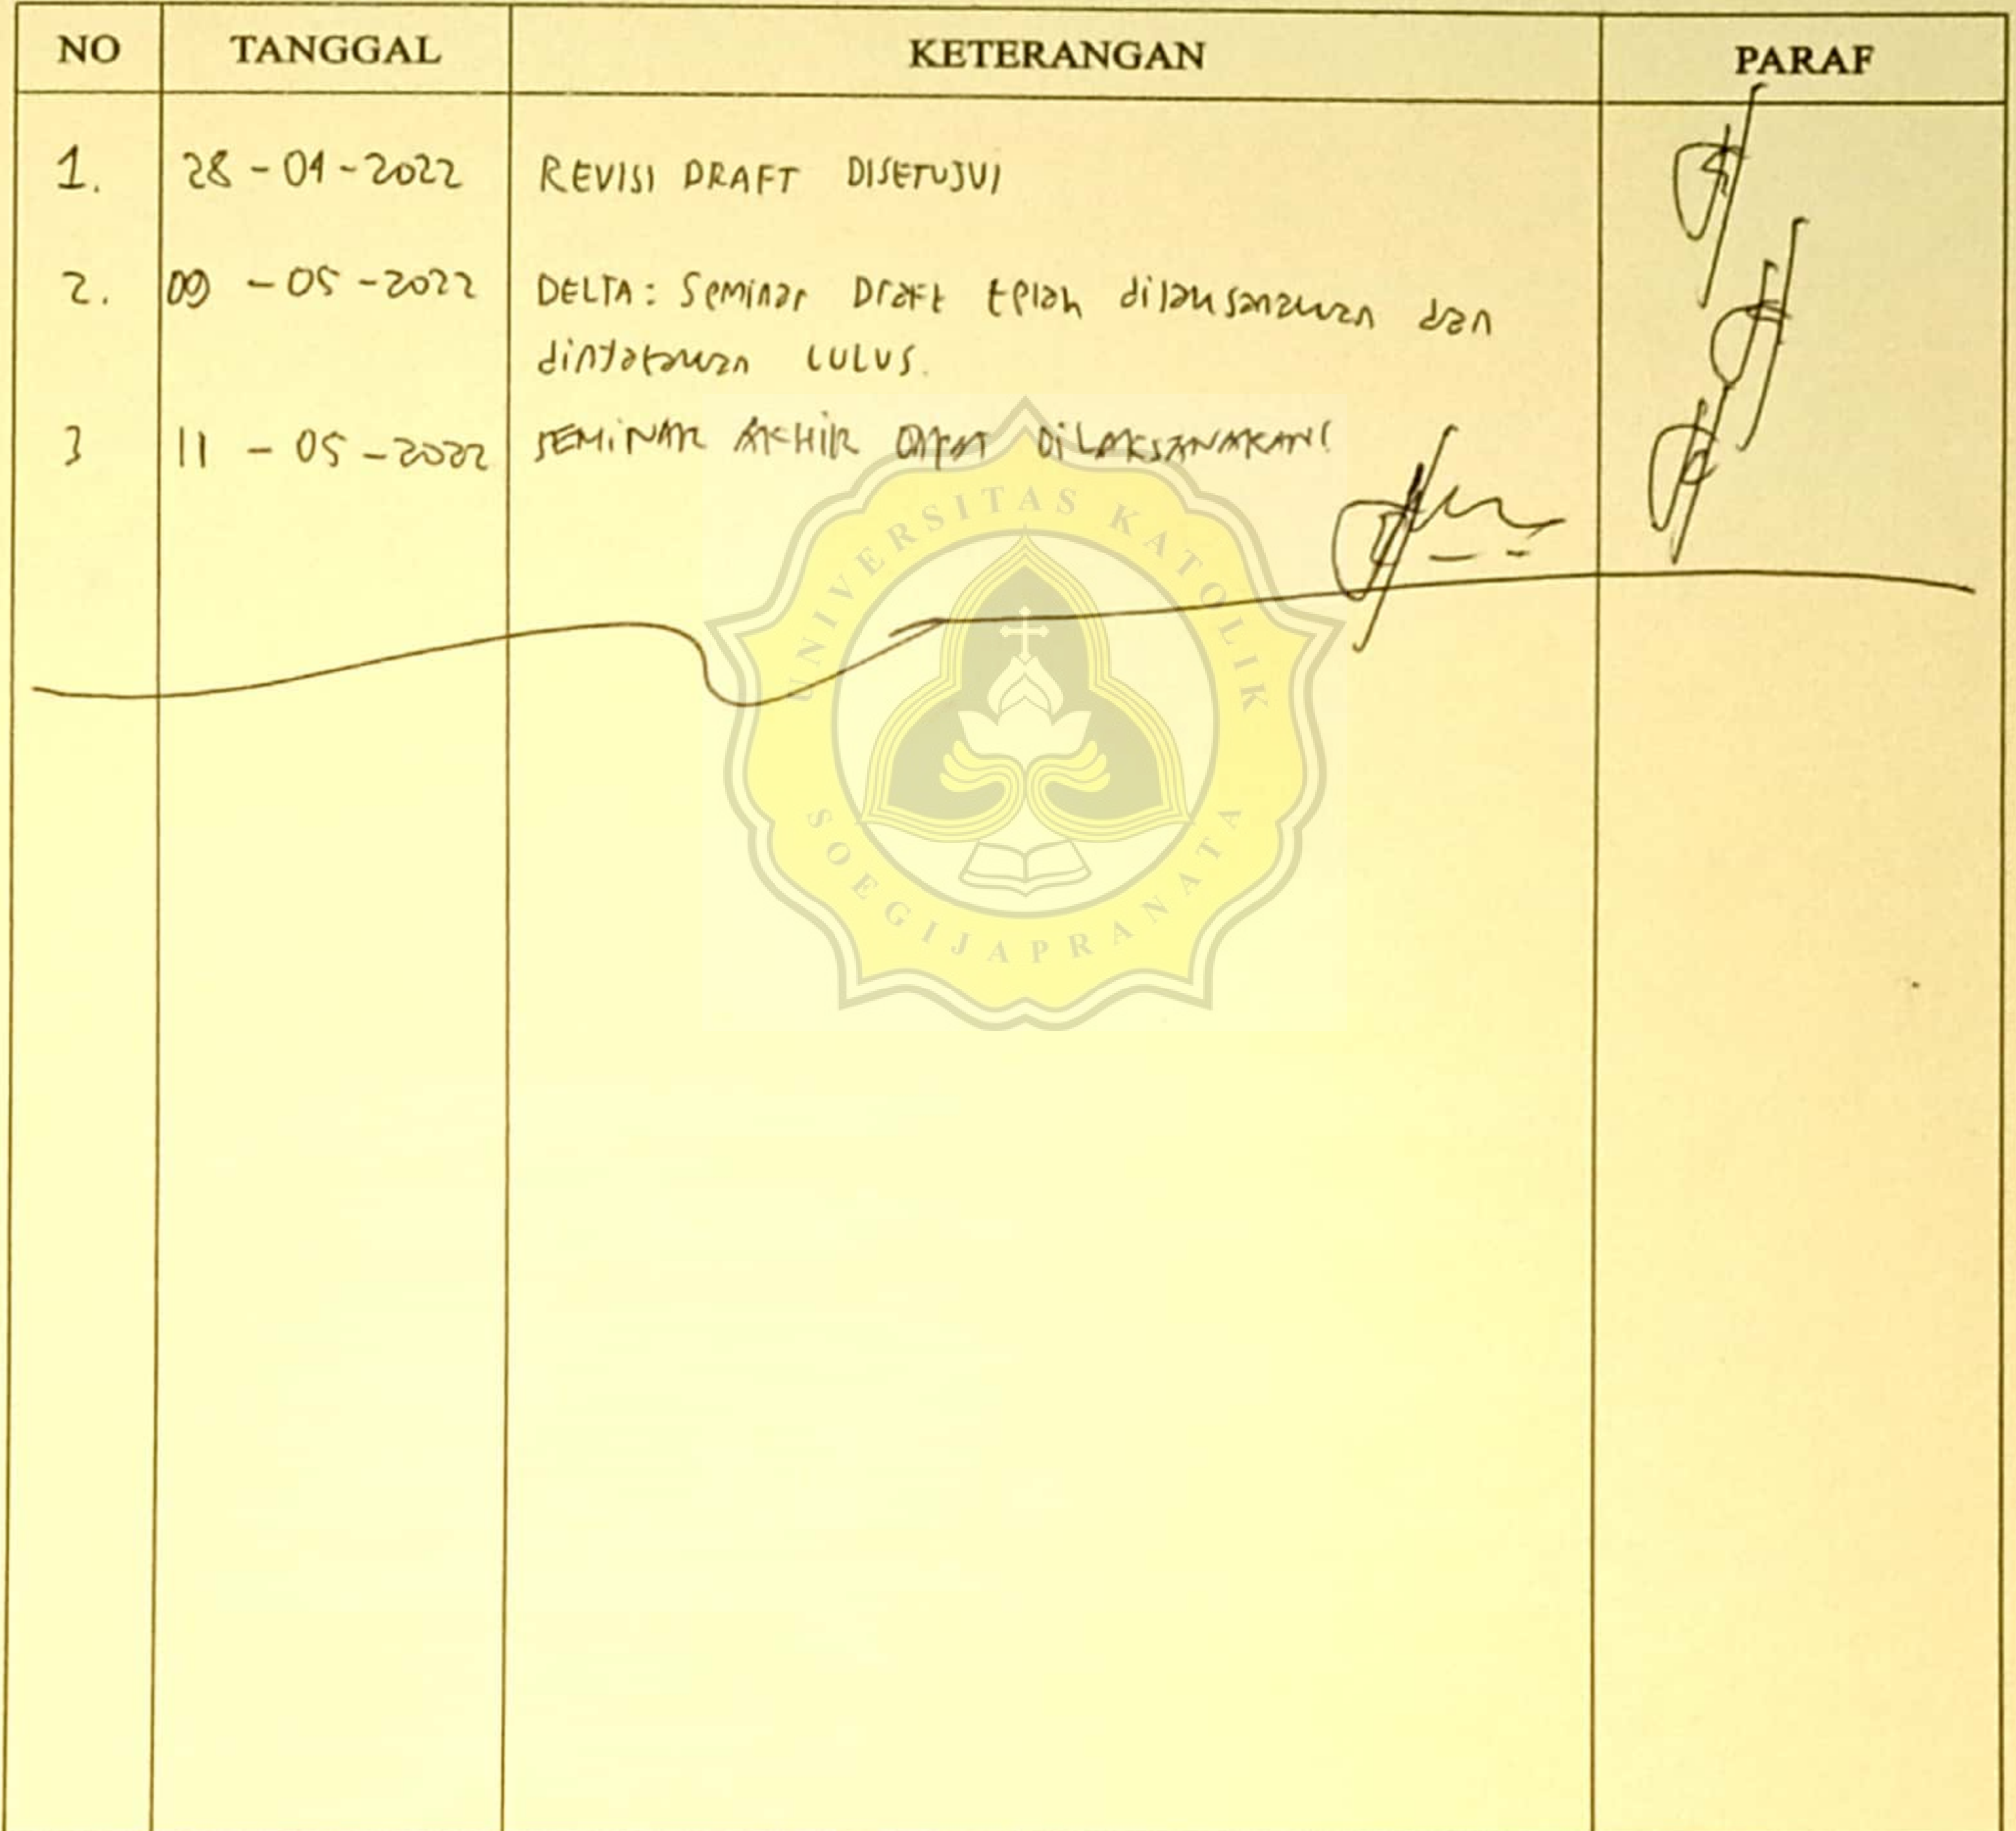 NO TANGGAL KETERANGAN PARAF
1. 28-04-2022 REVISI DRAFT DISETUJUI
2. 09-05-2022 DELTA: Seminar Draft telah dilaksanakan dan
dinyatakan LULUS.
3 11-05-2022 SEMINAR AKHIR DAPAT DILAKSANAKAN!
UNIVERSITAS KATOLIK
SOEGIJAPRANATA